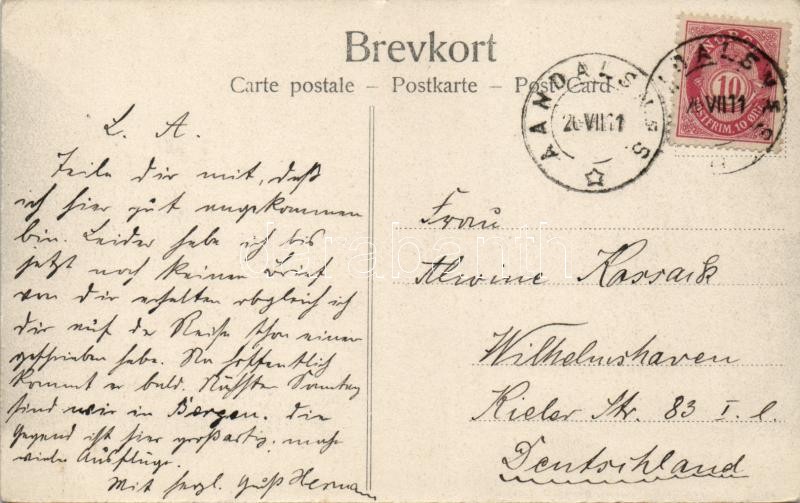 Brevkort
Carte postale – Postkarte – Post Card
AANDALSNES
26 VII 11
NORGE
10
POSTFRIM. 10 ØRE
L. A.
Teile dir mit, daß
ich hier gut angekommen
bin. Leider habe ich bis
jetzt noch keinen Brief
von dir erhalten obgleich ich
dir auf der Reise schon einen
geschrieben habe. Na hoffentlich
kommt er bald. Nächsten Sonntag
sind wir in Bergen. Die
Gegend ist hier großartig. mache
viele Ausflüge.
Mit herzl. Gruß Hermann
Frau
Alwine Kossack
Wilhelmshaven
Kieler Str. 83 I. l.
Deutschland
darabanth.com